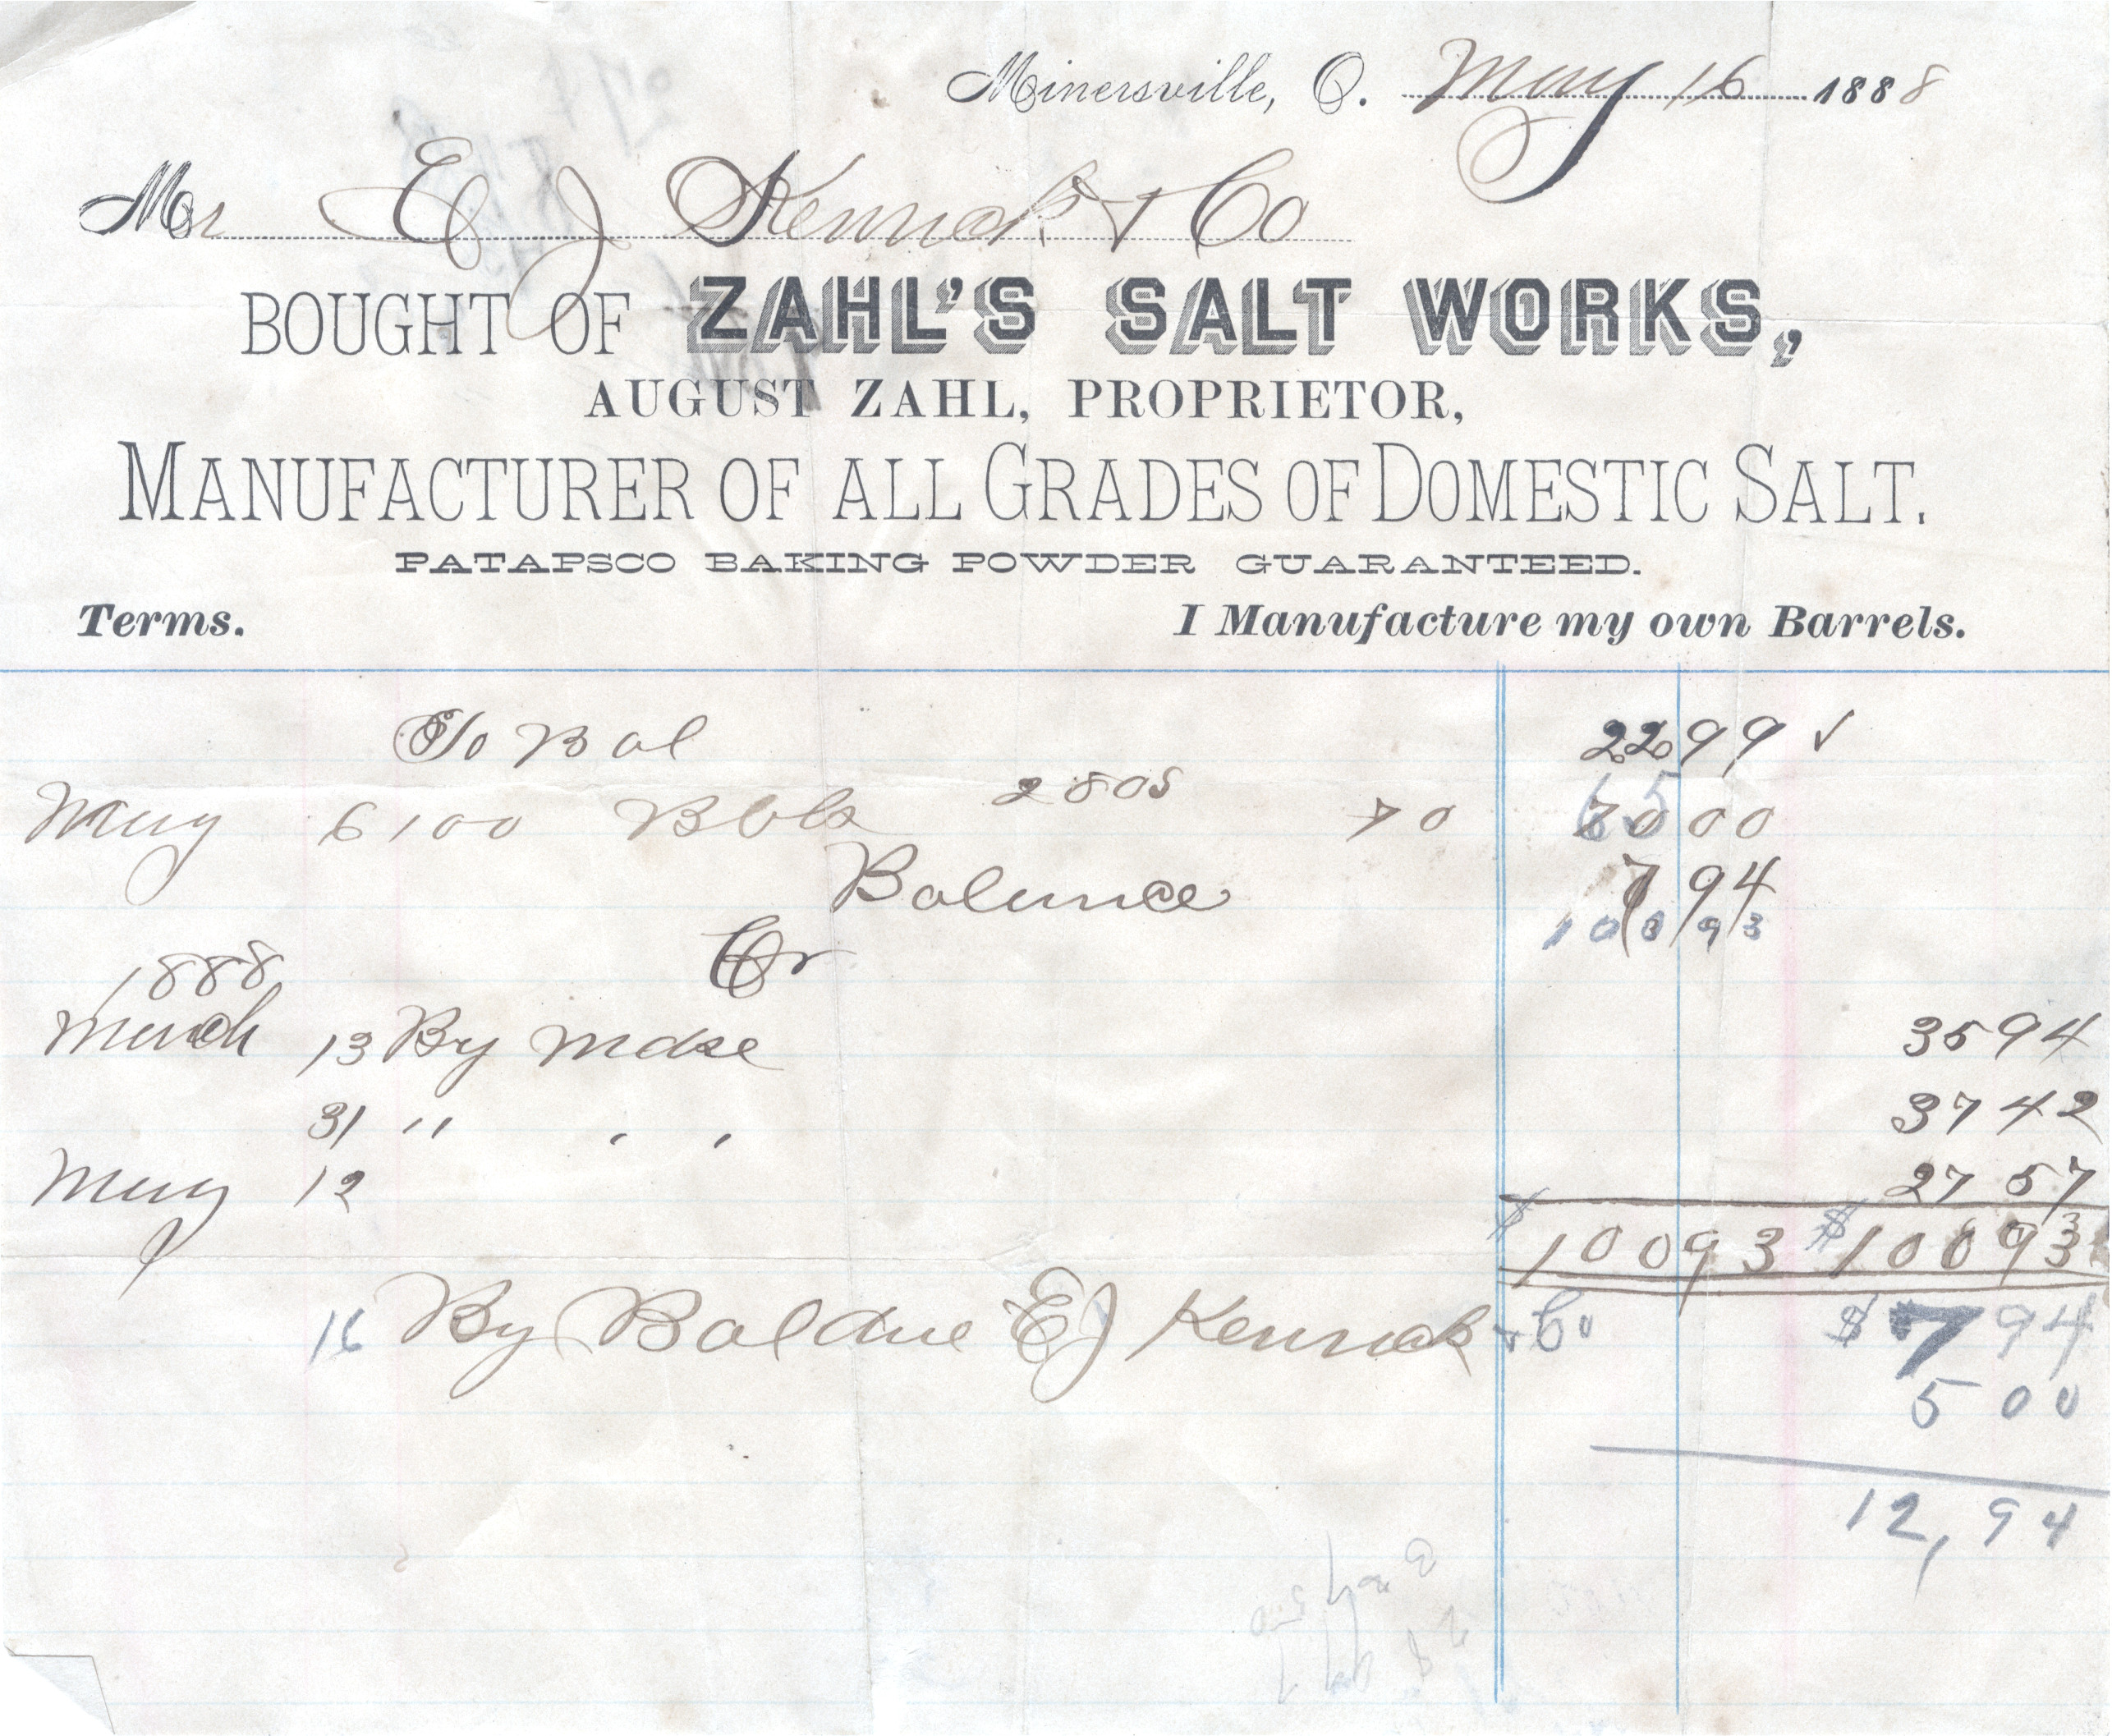 Minersville, O. May 16 1888
Mr E J Kenrick & Co
BOUGHT OF ZAHL'S SALT WORKS,
AUGUST ZAHL, PROPRIETOR,
MANUFACTURER OF ALL GRADES OF DOMESTIC SALT.
PATAPSCO BAKING POWDER GUARANTEED.
Terms. I Manufacture my own Barrels.
To Bal 22 99 ✓
May 6 100 Bbls 2805 70 70 00
65
Balance 7 94
100 93
Cr
1888
March 13 By Mdse 35 94
31 " " " 37 42
May 12 27 57
$ 100 93 $ 100 93
16 By Bal due E J Kenrick & Co $ 7 94
5 00
12,94